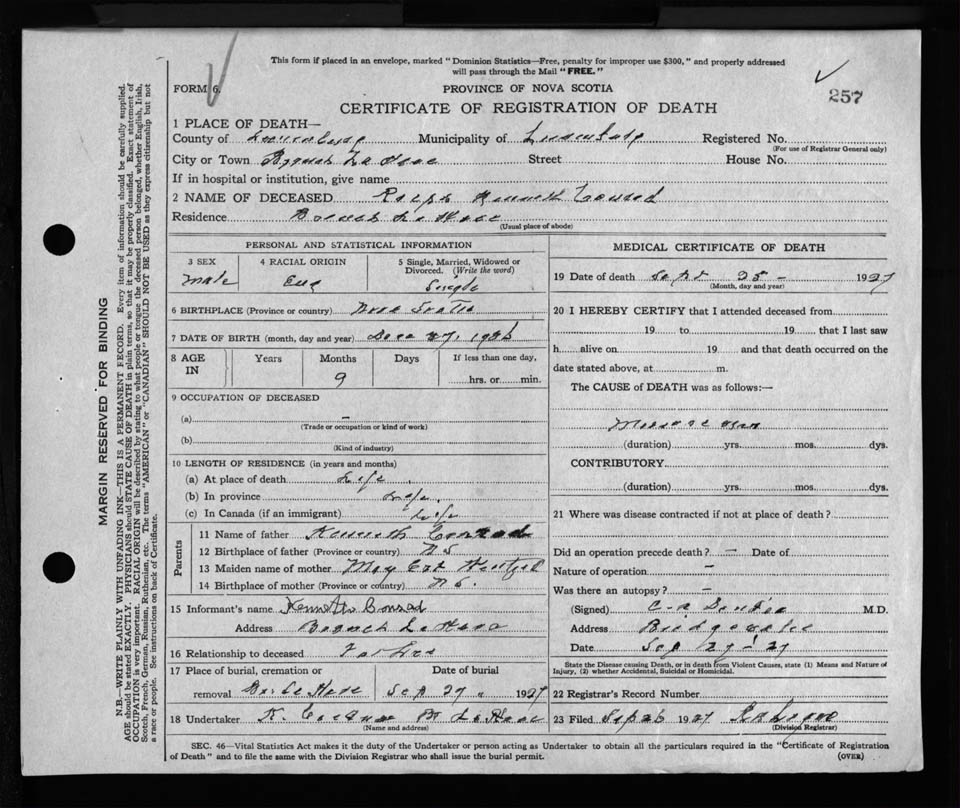 This form if placed in an envelope, marked "Dominion Statistics—Free, penalty for improper use $300," and properly addressed
will pass through the Mail "FREE."
FORM 6.
PROVINCE OF NOVA SCOTIA
257
CERTIFICATE OF REGISTRATION OF DEATH
1 PLACE OF DEATH—
County of Lunenburg Municipality of Lunenburg Registered No.
(For use of Registrar General only)
City or Town La Have Street House No.
If in hospital or institution, give name
2 NAME OF DECEASED Ralph Kenneth Conrad
Residence La Have
(Usual place of abode)
PERSONAL AND STATISTICAL INFORMATION
3 SEX 4 RACIAL ORIGIN 5 Single, Married, Widowed or
Divorced. (Write the word)
male Eng Single
6 BIRTHPLACE (Province or country) Nova Scotia
7 DATE OF BIRTH (month, day and year) Dec 27, 1926
8 AGE IN Years Months Days If less than one day,
9 hrs. or min.
9 OCCUPATION OF DECEASED
(a) –
(Trade or occupation or kind of work)
(b)
(Kind of industry)
10 LENGTH OF RESIDENCE (in years and months)
(a) At place of death Life
(b) In province Life
(c) In Canada (if an immigrant) Life
Parents
11 Name of father Kenneth Conrad
12 Birthplace of father (Province or country) N S
13 Maiden name of mother May
14 Birthplace of mother (Province or country) N S.
15 Informant's name Kenneth Conrad
Address La Have
16 Relationship to deceased Father
17 Place of burial, cremation or Date of burial
removal La Have Sep 27 1927
18 Undertaker K. La Have
(Name and address)
MEDICAL CERTIFICATE OF DEATH
19 Date of death Sept 25 – 1927
(Month, day and year)
20 I HEREBY CERTIFY that I attended deceased from
19 to 19 that I last saw
h alive on 19 and that death occurred on the
date stated above, at m.
The CAUSE of DEATH was as follows:—
(duration) yrs. mos. dys.
CONTRIBUTORY
(duration) yrs. mos. dys.
21 Where was disease contracted if not at place of death?
Did an operation precede death? – Date of
Nature of operation –
Was there an autopsy? –
(Signed) M.D.
Address Bridgewater
Date Sep 27 – 27
State the Disease causing Death, or in death from Violent Causes, state (1) Means and Nature of
Injury, (2) whether Accidental, Suicidal or Homicidal.
22 Registrar's Record Number
23 Filed Sep 26 1927
(Division Registrar)
SEC. 46—Vital Statistics Act makes it the duty of the Undertaker or person acting as Undertaker to obtain all the particulars required in the "Certificate of Registration
of Death" and to file the same with the Division Registrar who shall issue the burial permit.
(OVER)
MARGIN RESERVED FOR BINDING
N.B.—WRITE PLAINLY WITH UNFADING INK—THIS IS A PERMANENT RECORD. Every item of information should be carefully supplied.
AGE should be stated EXACTLY. PHYSICIANS should STATE CAUSE OF DEATH in plain terms, so that it may be properly classified. Exact statement of
OCCUPATION is very important. RACIAL ORIGIN will be described by stating to what people or tongue the deceased person belonged, whether English, Irish,
Scotch, French, German, Russian, Ruthenian, etc. The terms "AMERICAN" or "CANADIAN" SHOULD NOT BE USED as they express citizenship but not
a race or people. See instructions on back of Certificate.